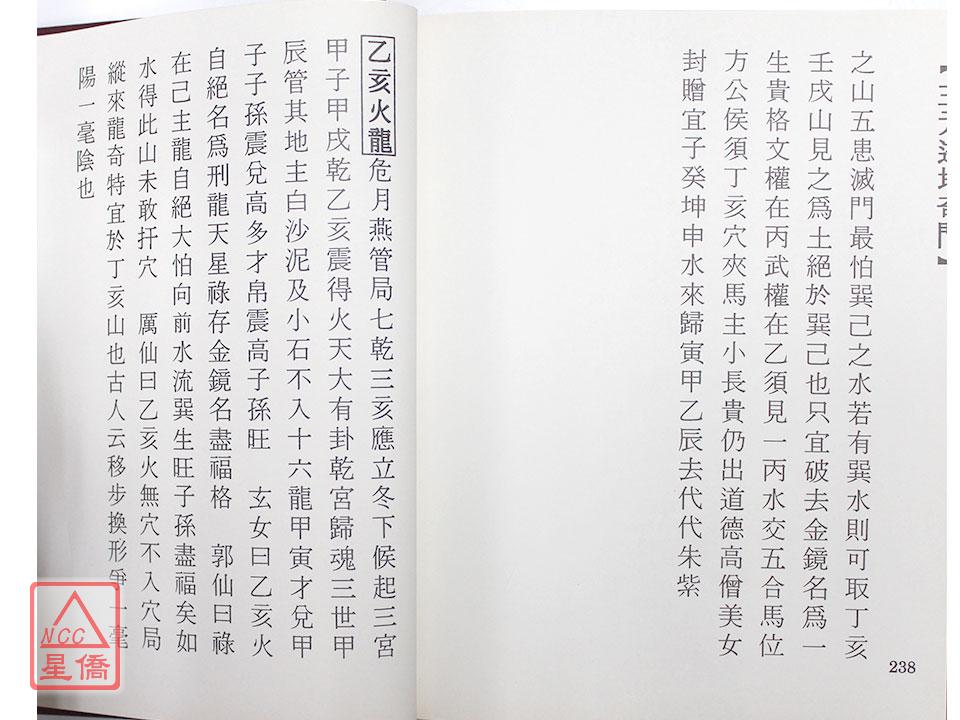 之山五患滅門最怕巽己之水若有巽水則可取丁亥
壬戌山見之爲土絕於巽己也只宜破去金鏡名爲一
生貴格文權在丙武權在乙須見一丙水交五合馬位
方公侯須丁亥穴夾馬主小長貴仍出道德高僧美女
封贈宜子癸坤申水來歸寅甲乙辰去代代朱紫
238
乙亥火龍危月燕管局七乾三亥應立冬下候起三宮
甲子甲戌乾乙亥震得火天大有卦乾宮歸魂三世甲
辰管其地主白沙泥及小石不入十六龍甲寅才兌甲
子子孫震兌高多才帛震高子孫旺　玄女曰乙亥火
自絕名爲刑龍天星祿存金鏡名盡福格　郭仙曰祿
在己主龍自絕大怕向前水流巽生旺子孫盡福矣如
水得此山未敢扦穴　厲仙曰乙亥火無穴不入穴局
縱來龍奇特宜於丁亥山也古人云移步換形爭一毫
陽一毫陰也
NCC
星僑